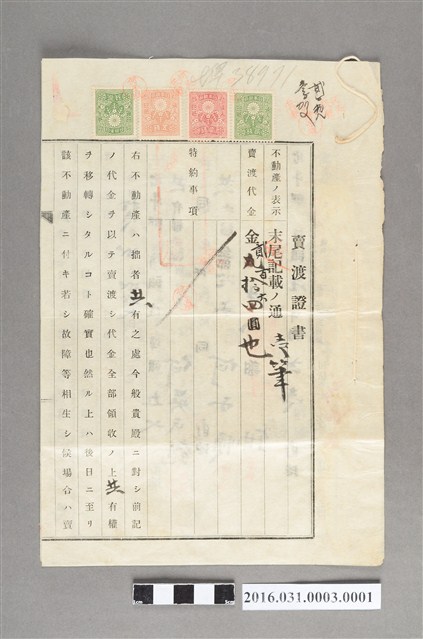 賣渡證書
不動產ノ表示 末尾記載ノ通 壹筆
賣渡代金 金貳百 拾四圓也
特約事項
右不動產ハ拙者共有之處今般貴殿ニ對シ前記
ノ代金ヲ以テ賣渡シ代金全部領收ノ上共有權
ヲ移轉シタルコト確實也然ル上ハ後日ニ至リ
該不動產ニ付キ若シ故障等相生シ候場合ハ賣
2016.031.0003.0001